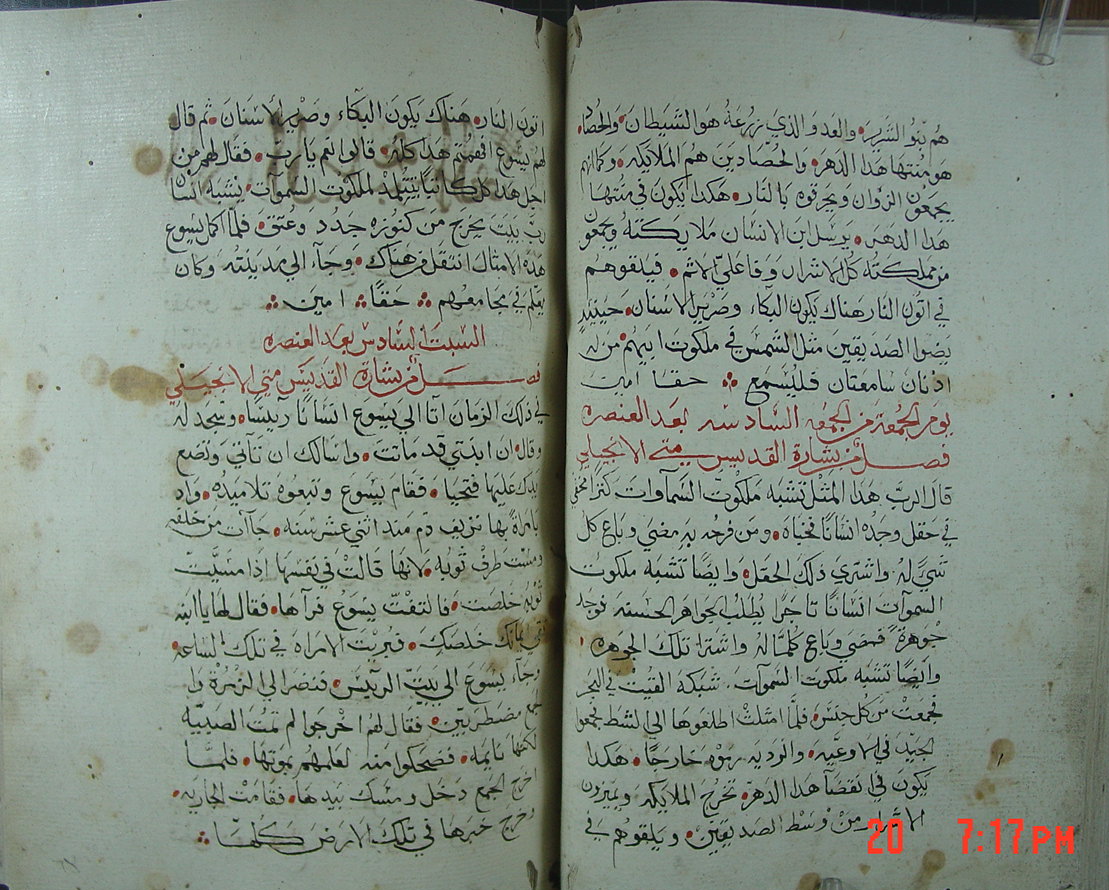 هم بنوا الشرير والعدو الذي زرعه هو الشيطان والحصاد
هو منتها هذا الدهر والحصادين هم الملايكه وكما انهم
يجمعون الزوان ويحرقوه بالنار هكذا يكون في منتها
هذا الدهر يرسل ابن الانسان ملايكته ويجمعون
من مملكته كل الاشرار وفاعلي الاثم فيلقوهم
في اتون النار هناك يكون البكاء وصرير الاسنان حينيذ
يضوا الصديقين مثل الشمس في ملكوت ابيهم من له
اذنان سامعتان فليسمع حقا امين
يوم الجمعه من الجمعه السادسه بعد العنصره
فصل من بشارة القديس متى الانجيلي
قال الرب هذا المثل تشبه ملكوت السماوات كنزا مخفي
في حقل وجده انسانا فخباه ومن فرحه به مضي وباع كل
شي له واشتري ذلك الحقل وايضا تشبه ملكوت
السموات انسانا تاجرا يطلب الجواهر الحسنه فوجد
جوهرة فمضي وباع كلما له واشترا تلك الجوهره
وايضا تشبه ملكوت السموات شبكه القيت في البحر
فجمعت من كل جنس فلما امتلت اطلعوها الي الشط فجمعوا
الجيد في الاوعيه والرديه رموه خارجا هكذا
يكون في انقضا هذا الدهر تخرج الملايكه ويميزون
الاشرار من وسط الصديقين ويلقوهم في
20 7:17 PM
اتون النار هناك يكون البكاء وصرير الاسنان ثم قال
لهم يسوع افهمتم هذا كله قالوا نعم يارب فقال لهم من
اجل هذا كل كاتبا يتتلمد لملكوت السموات يشبه انسانا
رب بيت يخرج من كنوزه جدد وعتق فلما اكمل يسوع
هذه الامثال انتقل من هناك وجاء الي مدينته وكان
يعلم في مجامعهم حقا امين
السبت السادس بعد العنصره
فصل من بشارة القديس متي الانجيلي
في ذلك الزمان اتا الي يسوع انسانا رييسا وسجد له
وقال ان ابنتي قد ماتت واسالك ان تاتي وتضع
يدك عليها فتحيا فقام يسوع وتبعوه تلاميذه واذ
بامراة بها نزيف دم منذ اثني عشر سنه جاات من خلفه
ومست طرف ثوبه لانها قالت في نفسها اذا مسيت
ثوبه خلصت فالتفت يسوع فرآها فقال لها يا ابنه
ثقي ايمانك خلصك فبريت الامراه في تلك الساعه
وجاء يسوع الي بيت الرييس فنضر الي الزمرة وال
جمع مضطربين فقال لهم اخرجوا لم تمت الصبيه
لكنها نايمه فضحكوا منه لعلمهم بموتها فلما
اخرج الجمع دخل ومسك بيدها فقامت الجاريه
وخرج خبرها في تلك الارض كلها